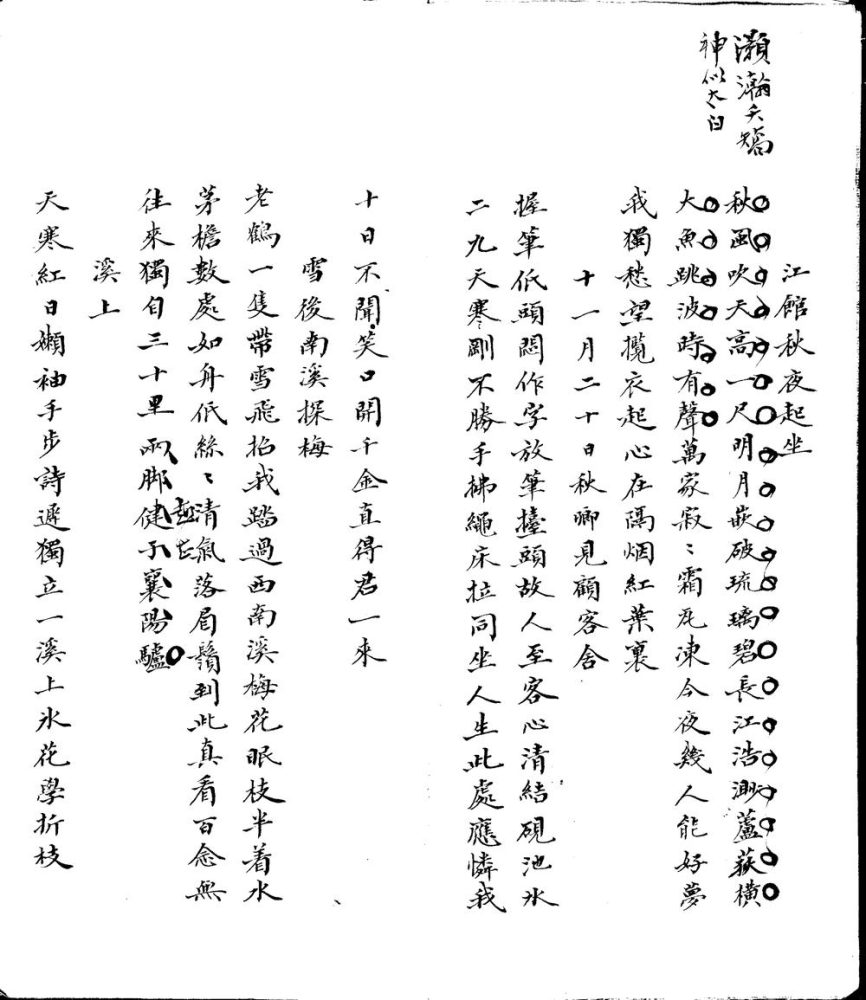 灝瀚夭矯
神似太白
江館秋夜起坐
秋風吹天高一尺明月嵌破琉璃碧長江浩渺蘆荻橫
大魚跳波時有聲萬家寂〻霜瓦凍今夜幾人能好夢
我獨愁望攬衣起心在隔烟紅葉裏
十一月二十日秋卿見顧客舍
握筆低頭悶作字放筆擡頭故人至客心清結硯池氷
二九天寒剛不勝手拂繩床拉同坐人生此處應憐我
十日不聞笑口開千金直得君一來
雪後南溪探梅
老鶴一隻帶雪飛招我踏過西南溪梅花眠枝半着水
茅檐數處如舟低絲〻清氣落眉鬚到此真看百念無
往來獨自三十里兩脚健于襄陽驢
溪上
天寒紅日嬾袖手步詩遲獨立一溪上氷花學折枝